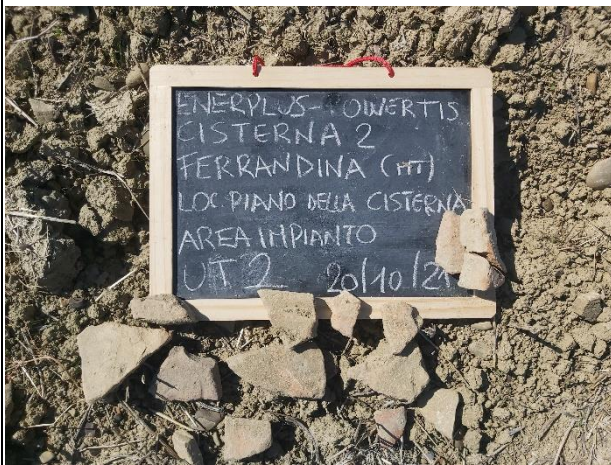 ENERPLUS - OWERTIS
CISTERNA 2
FERRANDINA (MT)
LOC. PIANO DELLA CISTERNA
AREA IMPIANTO
UT 2 20/10/21